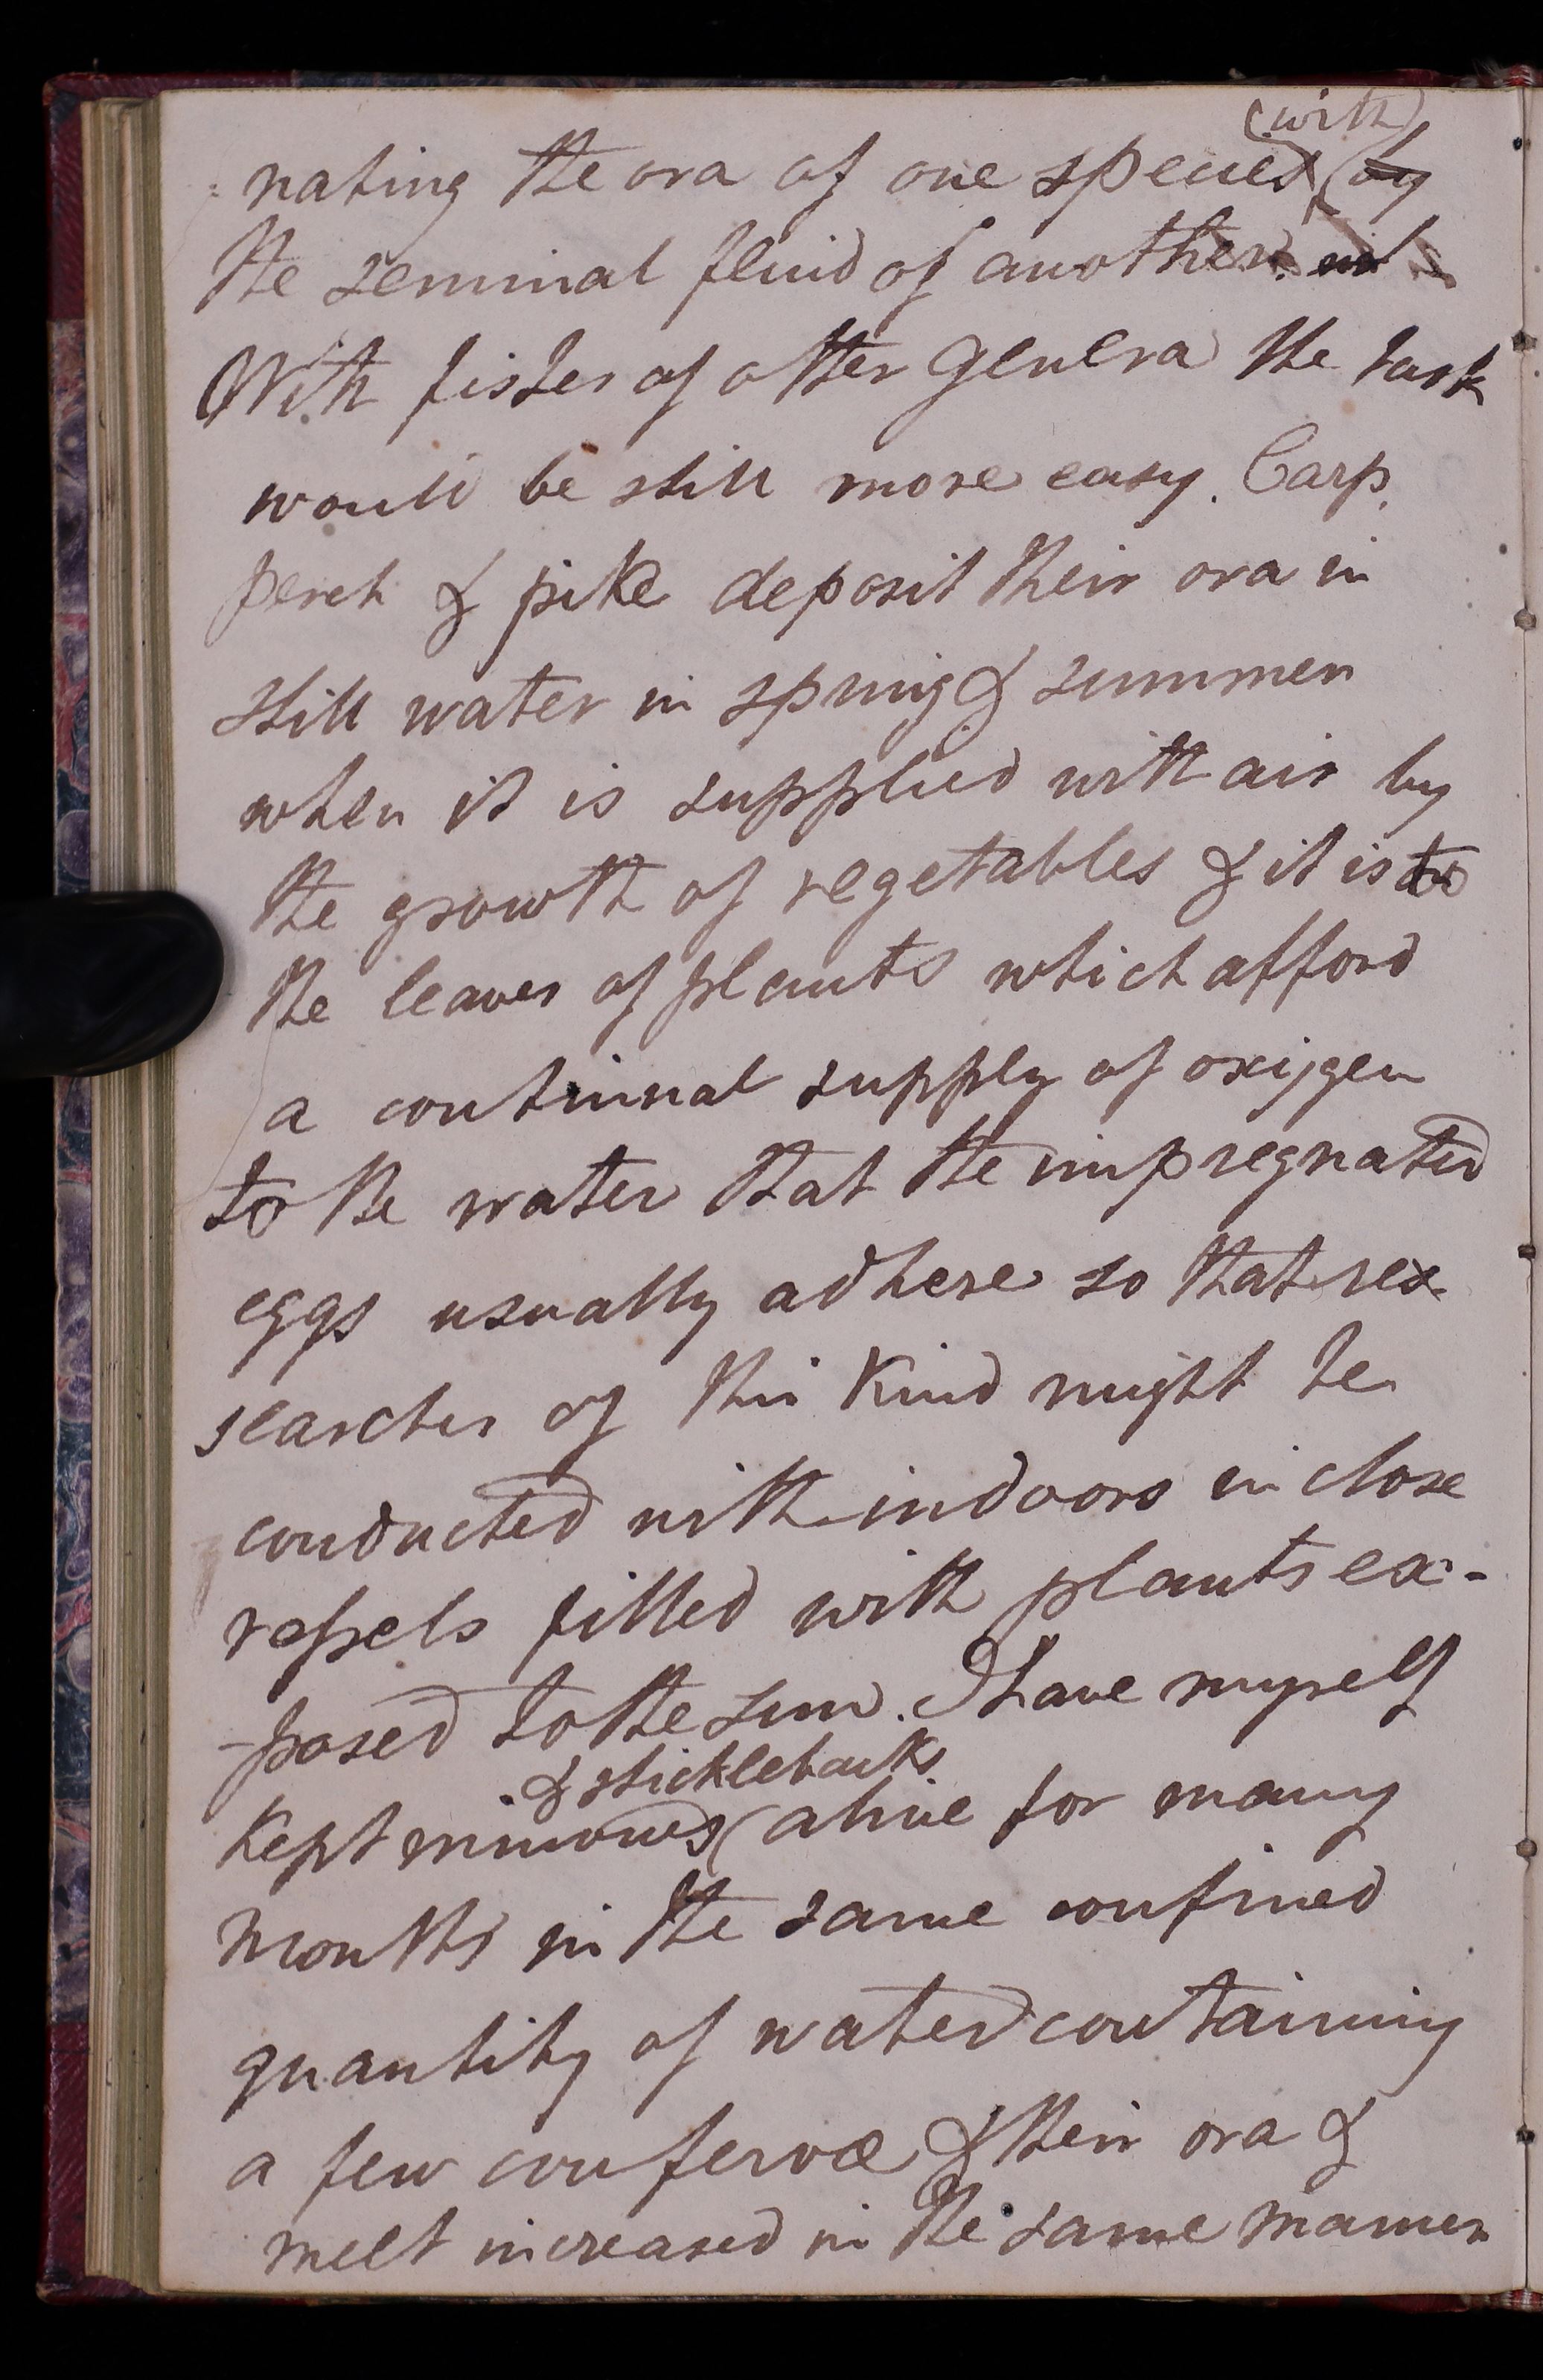 (with)
: nating the ova of one species (by
the seminal fluid of another.
With fishes of other genera the task
would be still more easy. Carp,
perch & pike deposit their ova in
still water in spring & summer
when it is supplied with air by
the growth of vegetables & it is to
the leaves of plants which afford
a continual supply of oxygen
to the water that the impregnated
eggs usually adhere so that re=
searches of this kind might be
conducted with indoors in close
vessels filled with plants ex-
-posed to the sun. I have myself
& sticklebacks
kept minnows (alive for many
months in the same confined
quantity of water containing
a few confervæ & their ova &
melt increased in the same manner